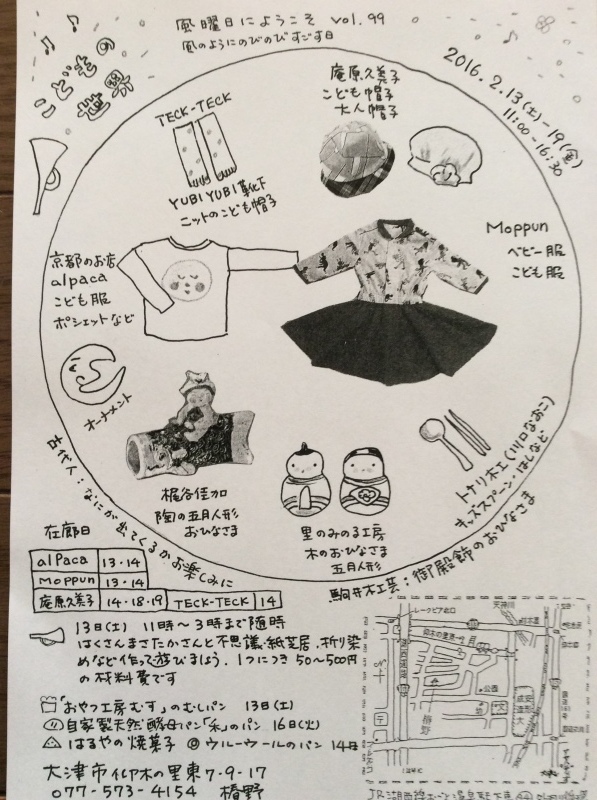 風曜日にようこそ vol.99
風のようにのびのびすごす日
こどもの
世界
2016.2.13(土)-19(金)
11:00-16:30
TECK-TECK
YUBIYUBI靴下
ニットのこども帽子
庵原久美子
こども帽子
大人帽子
京都のお店
alpaca
こども服
ポシェットなど
Moppun
ベビー服
こども服
オーナメント
梶谷佳加
陶の五月人形
おひなさま
里のみのる工房
木のおひなさま
五月人形
トナリ木工(川口ななお)
キッズスプーン・はしなど
古代人:なにが出てくるかお楽しみに
駒井木工芸:御殿飾のおひなさま
在廊日
alpaca 13・14
Moppun 13・14
庵原久美子 14・18・19 TECK-TECK 14
13日(土) 11時~3時まで随時
はくさんまさたかさんと不思議・紙芝居、折り染
めなど作って遊びましょう。1つにつき50~500円
の材料費です
「おやつ工房むす」のむしパン 13日(土)
自家製天然酵母パン「禾」のパン 16日(火)
はるやの焼菓子 ウルーウールのパン 14日
大津市仰木の里東7-9-17
077-573-4154 椿野
レークピア北口
天井川
仰木の里東一丁目
公園
成安造形大
椿野